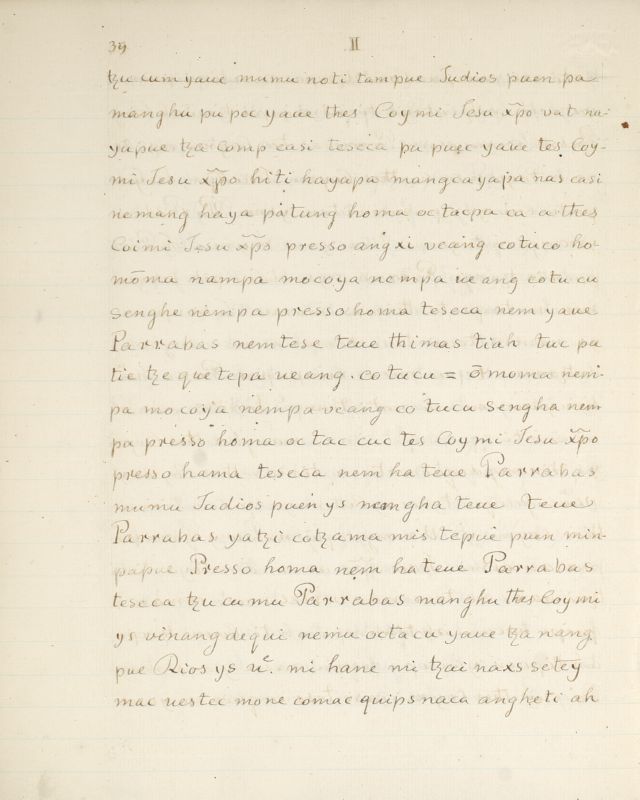 39 II
tzu cum yaue mumu noti tampue Judios puen pa
manghu pu pec yaue thes Coymi Jesu xp̃o vat na-
yapue tza comp casi teseca pa puec yaue tes Coy-
mi Jesu xp̃o hiti hayapa mangcayapa nas casi
nemang haya patung homa octacpa ca a thes
Coimi Jesu xp̃o presso angxi veang cotuco ho-
mōma nampa mocoya nempa ueang cotu cu
senghe nempa presso homa teseca nem yaue
Parrabas nemtese teue thimas tiah tuc pa
tic tze que tepa ueang. cotucu = ōmoma nem-
pa mocoya nempa veang cotucu sengha nem
pa presso homa octac cuc tes Coymi Jesu xp̃o
presso hama teseca nem ha teue Parrabas
mumu Judios puen ys nemgha teue teue
Parrabas yatzi cotzama mis tepue puen min-
papue Presso homa nem ha teue Parrabas
teseca tzu cumu Parrabas manghu thes Coymi
ys vinang dequi nemu octacu yaue tza nang
pue Rios ys ue. mi hane mi tzai naxs setey
mac uestec mone comac quips naca angheti ah